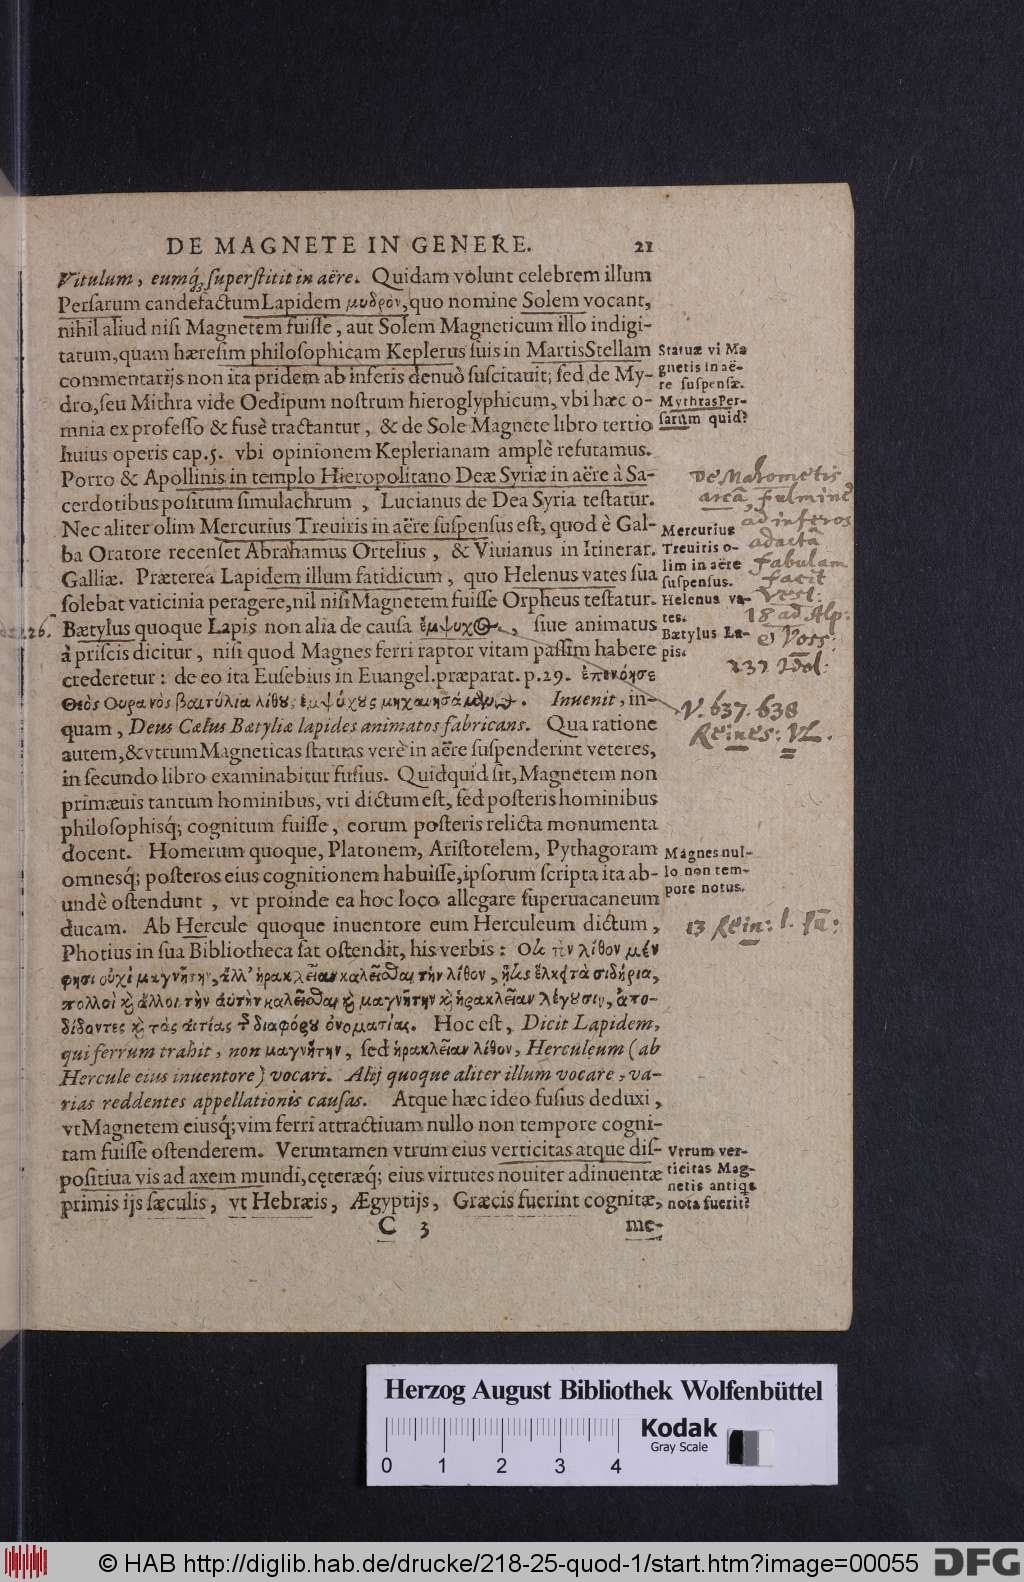 DE MAGNETE IN GENERE. 21
Vitulum, eumq́; ſuperſtitit in aëre. Quidam volunt celebrem illum
Perſarum candefactum Lapidem μυδρον, quo nomine Solem vocant,
nihil aliud niſi Magnetem fuiſſe, aut Solem Magneticum illo indigi-
tatum, quam hæreſim philoſophicam Keplerus ſuis in Martis Stellam
commentarijs non ita pridem ab inferis denuò ſuſcitauit; ſed de My-
dro, ſeu Mithra vide Oedipum noſtrum hieroglyphicum, vbi hæc o-
mnia ex profeſſo & fusè tractantur, & de Sole Magnete libro tertio
huius operis cap. 5. vbi opinionem Keplerianam amplè refutamus.
Porro & Apollinis in templo Hieropolitano Deæ Syriæ in aëre à Sa-
cerdotibus poſitum ſimulachrum, Lucianus de Dea Syria teſtatur.
Nec aliter olim Mercurius Treuiris in aëre ſuſpenſus eſt, quod è Gal-
ba Oratore recenſet Abrahamus Ortelius, & Viuianus in Itinerar.
Galliæ. Præterea Lapidem illum fatidicum, quo Helenus vates ſua
ſolebat vaticinia peragere, nil niſi Magnetem fuiſſe Orpheus teſtatur.
Bætylus quoque Lapis non alia de cauſa ἔμψυχος, ſiue animatus
à priſcis dicitur, niſi quod Magnes ferri raptor vitam paſſim habere
crederetur: de eo ita Euſebius in Euangel. præparat. p. 29. ἐπενόησε
Θεὸς Ουρανὸς βαιτύλια λίθȣς ἐμψύχους μηχανησάμενος. Inuenit, in-
quam, Deus Cælus Bætylia lapides animatos fabricans. Qua ratione
autem, & vtrum Magneticas ſtatuas verè in aëre ſuſpenderint veteres,
in ſecundo libro examinabitur fuſius. Quidquid ſit, Magnetem non
primæuis tantum hominibus, vti dictum eſt, ſed poſteris hominibus
philoſophisq́; cognitum fuiſſe, eorum poſteris relicta monumenta
docent. Homerum quoque, Platonem, Ariſtotelem, Pythagoram
omnesq́; poſteros eius cognitionem habuiſſe, ipſorum ſcripta ita ab-
undè oſtendunt, vt proinde ea hoc loco allegare ſuperuacaneum
ducam. Ab Hercule quoque inuentore eum Herculeum dictum,
Photius in ſua Bibliotheca ſat oſtendit, his verbis: τὴν λίθον μέν
φησι οὐχὶ μαγνῆτην, ἀλλ' ἡρακλεῖαν καλεῖσθαι τὴν λίθον, ἕλκει τὰ σιδήρια,
πολλοὶ καὶ ἄλλοι τὴν αὐτὴν καλεῖσθαι καὶ μαγνῆτην καὶ ἡρακλεῖαν λέγουσιν, ἀπο-
δίδοντες καὶ τὰς αἰτίας διαφόρȣ ὀνομασίας. Hoc eſt, Dicit Lapidem,
qui ferrum trahit, non μαγνῆτην, ſed ἡρακλεῖαν λίθον, Herculeum (ab
Hercule eius inuentore) vocari. Alij quoque aliter illum vocare, va-
rias reddentes appellationis cauſas. Atque hæc ideo fuſius deduxi,
vt Magnetem eiusq́; vim ferri attractiuam nullo non tempore cogni-
tam fuiſſe oſtenderem. Veruntamen vtrum eius verticitas atque diſ-
poſitiua vis ad axem mundi, cęteræq́; eius virtutes nouiter adinuentæ
primis ijs ſæculis, vt Hebræis, Ægyptijs, Græcis fuerint cognitæ,
C 3 me-
Statuæ vi Ma
gnetis in aë-
re ſuſpenſæ.
Mythras Per-
ſarum quid?
Mercurius
Treuiris o-
lim in aëre
ſuſpenſus.
Helenus va-
tes.
Bætylus La-
pis.
Magnes nul-
lo non tem-
pore notus.
Vtrum ver-
ticitas Mag-
netis antiqs
nota fuerit?
De Mahometis
arcâ fulmine
ad inferos
adactâ
fabulam
facit
18 ad Alp:
231
V. 637. 638
Reines: VL.
13 Rein: l.
26.
Herzog August Bibliothek Wolfenbüttel
Kodak
Gray Scale
0 1 2 3 4
© HAB http://diglib.hab.de/drucke/218-25-quod-1/start.htm?image=00055
DFG